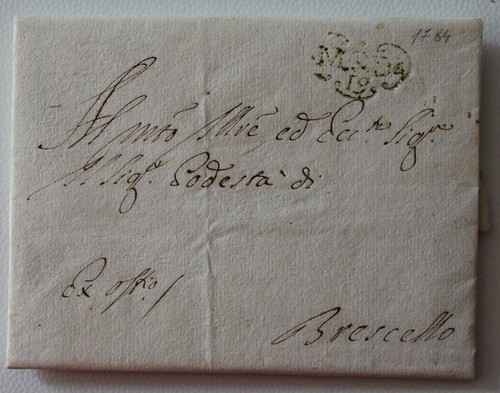 1784
19
Al molto Illre ed Ecc.te Sigr.
Il Sigr. Podestà di
Ex offio. /
Brescello